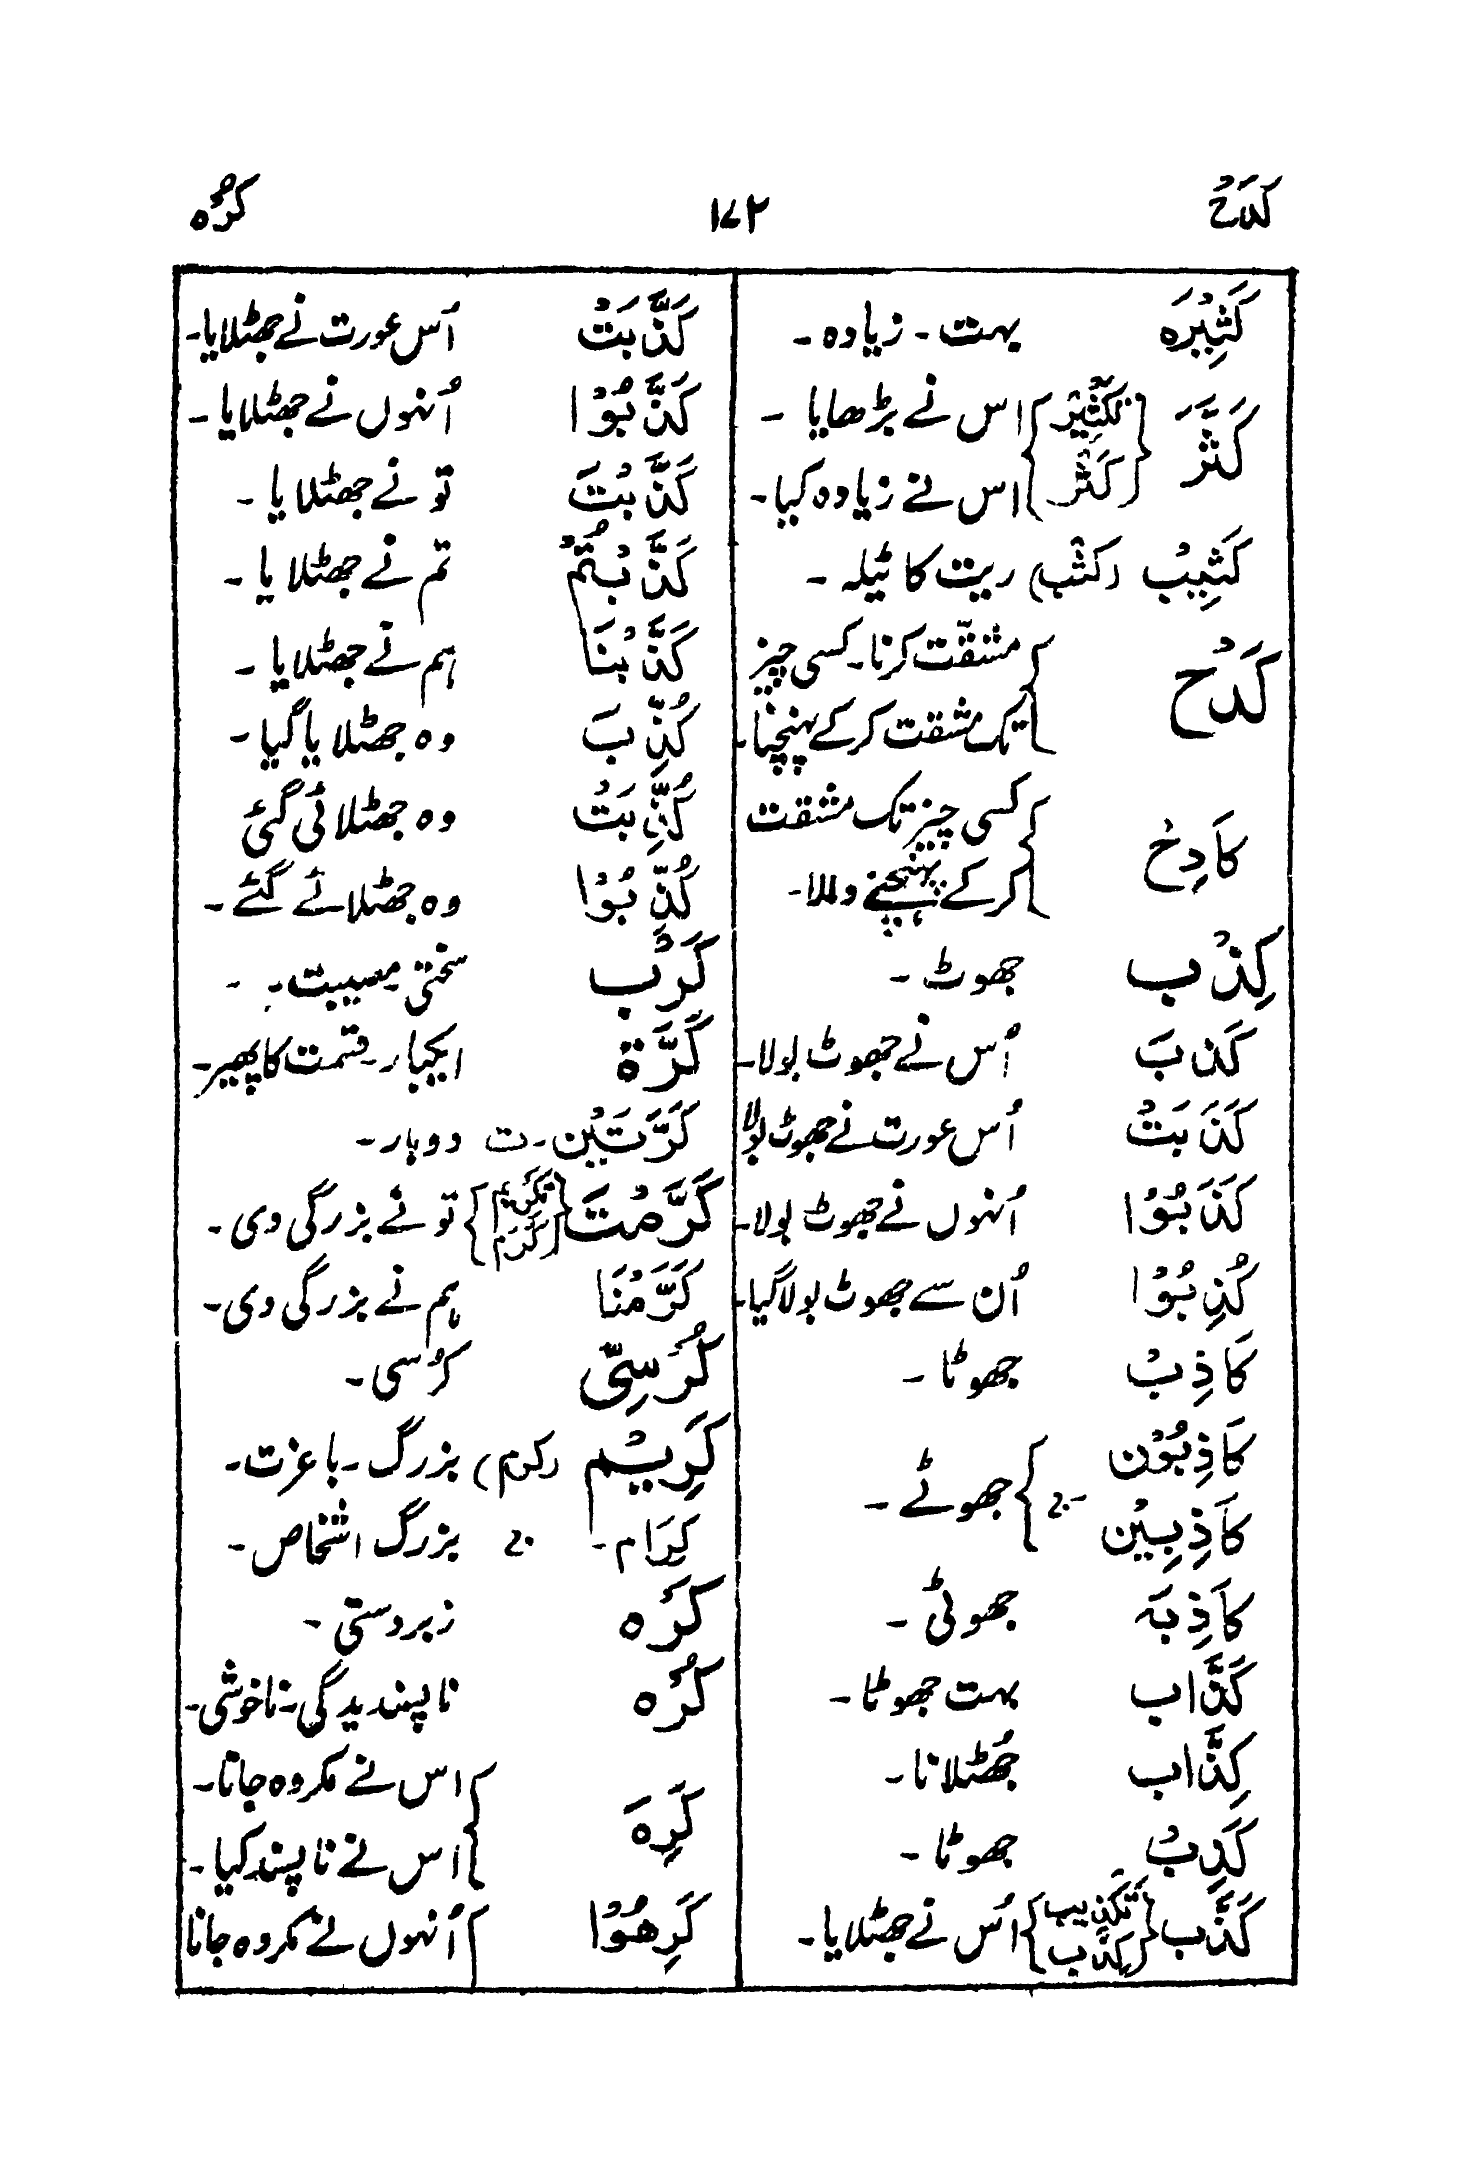 کَدْحٌ ۱۷۲ کُرْه
کَثِیْرَہ بہت ۔ زیادہ ۔
کَثَّرَ {تَکْثِیْر اس نے بڑھایا ۔
کَثَّرَ} اس نے زیادہ کیا ۔
کَثِیْبٌ (کثب) ریت کا ٹیلہ ۔
کَدْح مشقّت کرنا ۔ کسی چیز
تک مشقت کرکے پہنچنا ۔
کَادِحٌ کسی چیز تک مشقت
کرکے پہنچنے والا ۔
کِذْب جھوٹ ۔
کَذَبَ اُس نے جھوٹ بولا ۔
کَذَبَتْ اُس عورت نے جھوٹ بولا
کَذَبُوْا اُنہوں نے جھوٹ بولا ۔
کُذِبُوْا اُن سے جھوٹ بولا گیا ۔
کَاذِبٌ جھوٹا ۔
کَاذِبُوْن
کَاذِبِیْن ۔ ج } جھوٹے ۔
کَاذِبَہ جھوٹی ۔
کَذَّاب بہت جھوٹا ۔
کِذَّاب جُھٹلانا ۔
کَذِبٌ جھوٹا ۔
کَذَّبَ {تَکْذِیْب
کِذَّب} اُس نے جھٹلایا ۔
کَذَّبَتْ اُس عورت نے جھٹلایا ۔
کَذَّبُوْا اُنہوں نے جھٹلایا ۔
کَذَّبْتَ تو نے جھٹلایا ۔
کَذَّبْتُمْ تم نے جھٹلایا ۔
کَذَّبْنَا ہم نے جھٹلایا ۔
کُذِّبَ وہ جھٹلایا گیا ۔
کُذِّبَتْ وہ جھٹلائی گئی
کُذِّبُوْا وہ جھٹلائے گئے ۔
کَرْب سختی ۔ مصیبت ۔
کَرَّۃ ایکبار ۔ قسمت کا پھیر ۔
کَرَّتَیْن ۔ ت دوبار ۔
کَرَّمْتَ {تَکْرِیم
کَرَّم} تو نے بزرگی دی ۔
کَرَّمْنَا ہم نے بزرگی دی ۔
کُرْسِیّ کرُسی ۔
کَرِیْم (کرم) بزرگ ۔ باعزت ۔
کِرَام ۔ ج بزرگ اشخاص ۔
کَرْہ زبردستی ۔
کُرْہ ناپسندیدگی ۔ ناخوشی ۔
کَرِہَ اس نے مکروہ جانا ۔
اس نے ناپسند کیا ۔
کَرِھُوْا اُنہوں نے مکروہ جانا